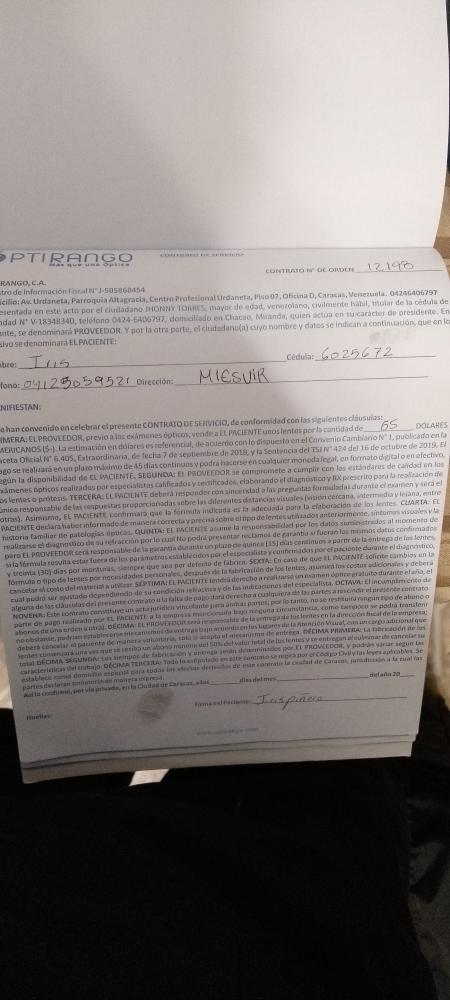 PTIRANGO
Más que una Óptica
CONTRATO DE SERVICIO
CONTRATO N° DE ORDEN 12,198
RANGO, C.A.
tro de Información Fiscal N° J-505868454
icilio: Av. Urdaneta, Parroquia Altagracia, Centro Profesional Urdaneta, Piso 07, Oficina D, Caracas, Venezuela. 04246406797
esentada en este acto por el ciudadano JHONNY TORRES, mayor de edad, venezolano, civilmente hábil, titular de la cédula de
idad N° V-18348340, teléfono 0424-6406797, domiciliado en Chacao, Miranda, quien actúa en su carácter de presidente. En
nte, se denominará PROVEEDOR. Y por la otra parte, el ciudadano(a) cuyo nombre y datos se indican a continuación, que en lo
sivo se denominará EL PACIENTE:
bre: Iris Cédula: 6025672
fono: 04125059521 Dirección: MIESVIR
NIFIESTAN:
e han convenido en celebrar el presente CONTRATO DE SERVICIO, de conformidad con las siguientes cláusulas:
IMERA: EL PROVEEDOR, previo a los exámenes ópticos, vende a EL PACIENTE unos lentes por la cantidad de 65 DOLARES
MERICANOS ($-). La estimación en dólares es referencial, de acuerdo con lo dispuesto en el Convenio Cambiario N° 1, publicado en la
aceta Oficial N° 6.405, Extraordinaria, de fecha 7 de septiembre de 2018, y la Sentencia del TSJ N° 424 del 16 de octubre de 2019. El
ago se realizará en un plazo máximo de 45 días continuos y podrá hacerse en cualquier moneda legal, en formato digital o en efectivo,
egún la disponibilidad de EL PACIENTE. SEGUNDA: EL PROVEEDOR se compromete a cumplir con los estándares de calidad en los
xámenes ópticos realizados por especialistas calificados y certificados, elaborando el diagnóstico y RX prescrito para la realización de
os lentes o prótesis. TERCERA: EL PACIENTE deberá responder con sinceridad a las preguntas formuladas durante el examen y será el
único responsable de las respuestas proporcionadas sobre las diferentes distancias visuales (visión cercana, intermedia y lejana, entre
otras). Asimismo, EL PACIENTE confirmará que la fórmula indicada es la adecuada para la elaboración de los lentes. CUARTA: EL
PACIENTE declara haber informado de manera correcta y precisa sobre el tipo de lentes utilizados anteriormente, síntomas visuales y la
historia familiar de patologías ópticas. QUINTA: EL PACIENTE asume la responsabilidad por los datos suministrados al momento de
realizarse el diagnóstico de su refracción por lo cual no podrá presentar reclamos de garantía si fueran los mismos datos confirmados
pero EL PROVEEDOR será responsable de la garantía durante un plazo de quince (15) días continuos a partir de la entrega de los lentes,
si la fórmula resulta estar fuera de los parámetros establecidos por el especialista y confirmados por el paciente durante el diagnóstico,
y treinta (30) días por monturas, siempre que sea por defecto de fábrica. SEXTA: En caso de que EL PACIENTE solicite cambios en la
fórmula o tipo de lentes por necesidades personales, después de la fabricación de los lentes, asumirá los costos adicionales y deberá
cancelar el costo del material a utilizar. SEPTIMA: EL PACIENTE tendrá derecho a realizarse un examen óptico gratuito durante el año, el
cual podrá ser ajustado dependiendo de su condición refractiva y de las indicaciones del especialista. OCTAVA: El incumplimiento de
alguna de las cláusulas del presente contrato o la falta de pago dará derecho a cualquiera de las partes a rescindir el presente contrato
NOVENA: Este contrato constituye un acto jurídico vinculante para ambas partes; por lo tanto, no se restituirá ningún tipo de abono o
parte de pago realizado por EL PACIENTE a la empresa mencionada bajo ninguna circunstancia, como tampoco se podrá transferir
abonos de una orden a otra). DÉCIMA: EL PROVEEDOR será responsable de la entrega de los lentes en la dirección fiscal de la empresa;
no obstante, podrían establecerse mecanismos de entrega bajo acuerdo en los lugares de la Atención Visual, con un cargo adicional que
deberá cancelar el paciente de manera voluntaria, solo si acepta el mecanismo de entrega. DÉCIMA PRIMERA: La fabricación de los
lentes comenzará una vez que se reciba un abono mínimo del 50% del valor total de los lentes y se entregan al culminar de cancelar su
total DÉCIMA SEGUNDA: Los tiempos de fabricación y entrega serán determinados por EL PROVEEDOR, y podrán variar según las
características del trabajo. DÉCIMA TERCERA: Todo lo estipulado en este contrato se regirá por el Código Civil y las leyes aplicables. Se
establece como domicilio especial para todos los efectos derivados de este contrato la ciudad de Caracas, jurisdicción a la cual las
partes declaran someterse de manera expresa.
Así lo confirmo, por vía privada, en la Ciudad de Caracas, a los días del mes del año 20
Firma del Paciente: Iris piñero
Huellas: